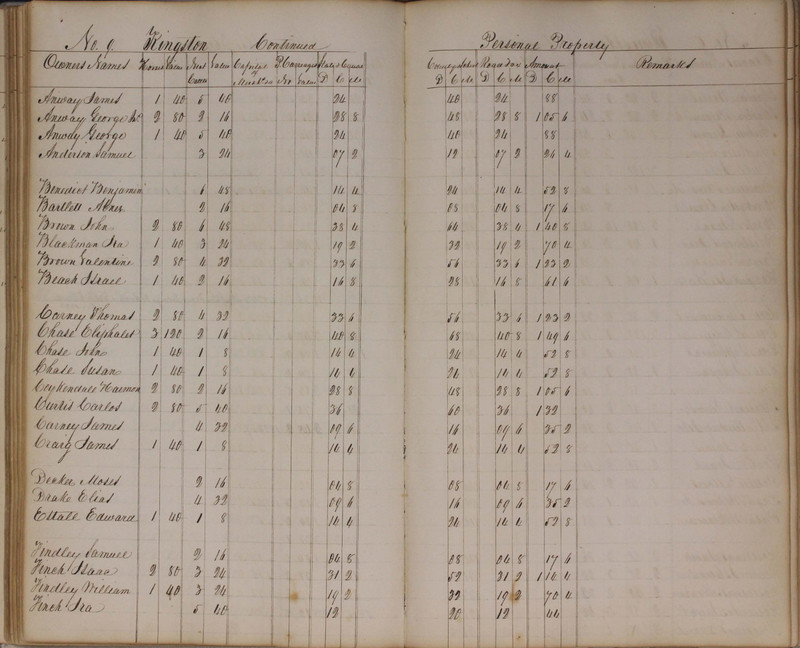 No. 9 Kingston Continued Personal Property
Owners Names Horses Value Neat Cattle Value Capital P. Carriages State & Canal County & School Road Tax Amount Remarks
D C M D C M D C M D C M
Anway James 1 40 5 40 24 40 24 88
Anway George 2 80 2 16 28 8 48 28 8 1 05 6
Anway George 1 40 5 40 24 40 24 88
Anderson Samuel 3 24 07 2 12 07 2 26 4
Benedict Benjamin 6 48 14 4 24 14 4 52 8
Bartlett Abner 2 16 04 8 08 04 8 17 6
Brown John 2 80 6 48 38 4 64 38 4 1 40 8
Blackman Ira 1 40 3 24 19 2 32 19 2 70 4
Brown Valentine 2 80 4 32 33 6 56 33 6 1 23 2
Beach Israel 1 40 2 16 16 8 28 16 8 61 6
Carney Thomas 2 80 4 32 33 6 56 33 6 1 23 2
Chase Eliphalet 3 120 2 16 40 8 68 40 8 1 49 6
Chase John 1 40 1 8 14 4 24 14 4 52 8
Chase Susan 1 40 1 8 14 4 24 14 4 52 8
Coykendall Harmon 2 80 2 16 28 8 48 28 8 1 05 6
Curtis Carlos 2 80 5 40 36 60 36 1 32
Carney James 4 32 09 6 16 09 6 35 2
Craig James 1 40 1 8 14 4 24 14 4 52 8
Denkee Moses 2 16 04 8 08 04 8 17 6
Drake Elias 4 32 09 6 16 09 6 35 2
Estall Edward 1 40 1 8 14 4 24 14 4 52 8
Findley Samuel 2 16 04 8 08 04 8 17 6
Finch Isaac 2 80 3 24 31 2 52 31 2 1 14 4
Findley William 1 40 3 24 19 2 32 19 2 70 4
Finch Ira 5 40 12 20 12 44